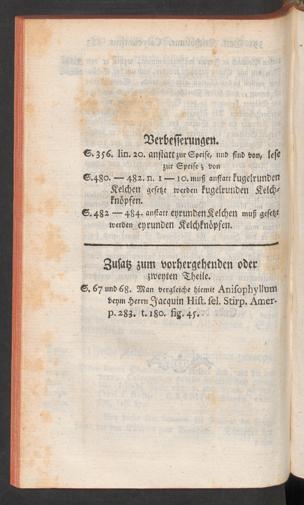 Verbesserungen.
S. 356. lin. 20. anstatt zur Speise, und sind von, lese
zur Speise; von
S. 480. — 482. n. 1 — 10. muß anstatt kugelrunden
Kelchen gesetzt werden kugelrunden Kelch-
knöpfen.
S. 482 — 484. anstatt eyrunden Kelchen muß gesetzt
werden eyrunden Kelchknöpfen.
Zusatz zum vorhergehenden oder
zweyten Theile.
S. 67 und 68. Man vergleiche hiemit Anisophyllum
beym Herrn Jacquin Hist. sel. Stirp. Amer-
p. 283. t. 180. fig. 45.